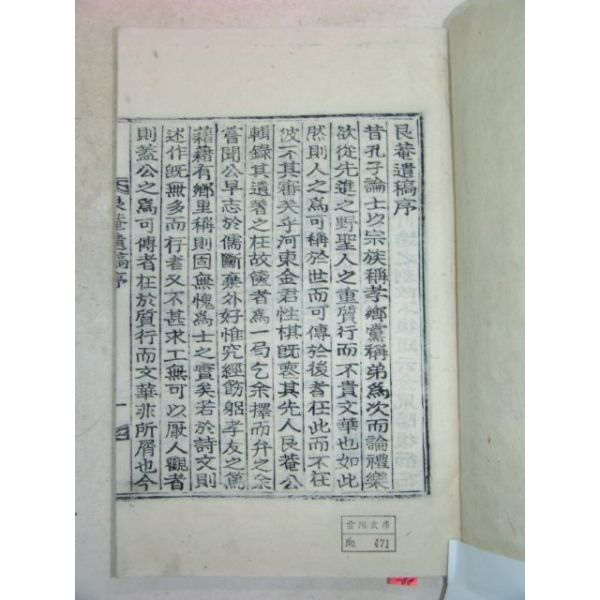 艮菴遺稿序
昔孔子論士以宗族稱孝鄉黨稱弟爲次而論禮樂
欲從先進之野聖人之重質行而不貴文華也如此
然則人之可稱於世而可傳於後者在此而不在
彼不其審矣乎河東金君性棋旣裒其先人艮菴公
輯錄其遺著之在故篋者爲一局乞余擇而弁之余
嘗聞公早志於儒斷棄外好惟究經飭躬孝友之篤
藉藉有鄉里稱則固無愧爲士之實矣若於詩文則
述作旣無多而行者又不甚求工無可以厭人觀者
則蓋公之爲可傳者在於質行而文華非所屑也今
艮菴遺稿序
一
文庫
No. 471